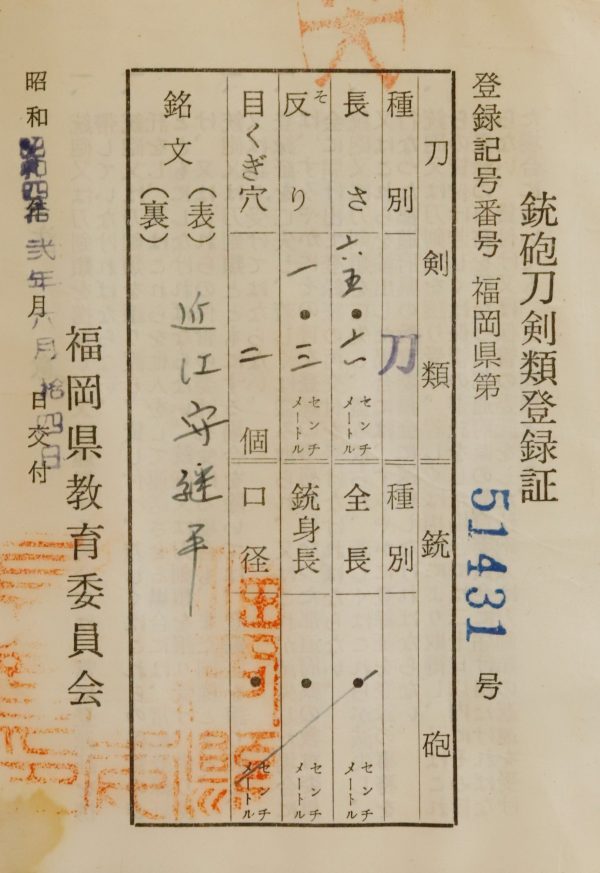 銃砲刀剣類登録証
登録記号番号 福岡県第 51431 号
刀剣類 銃砲
種別 刀 種別
長さ 六五・六 センチメートル 全長 ・ センチメートル
反り そ 一・三 センチメートル 銃身長 ・ センチメートル
目くぎ穴 二 個 口径 ・ センチメートル
銘文 (表) 近江守継平
(裏)
福岡県教育委員会
昭和 弐年六月拾四日交付